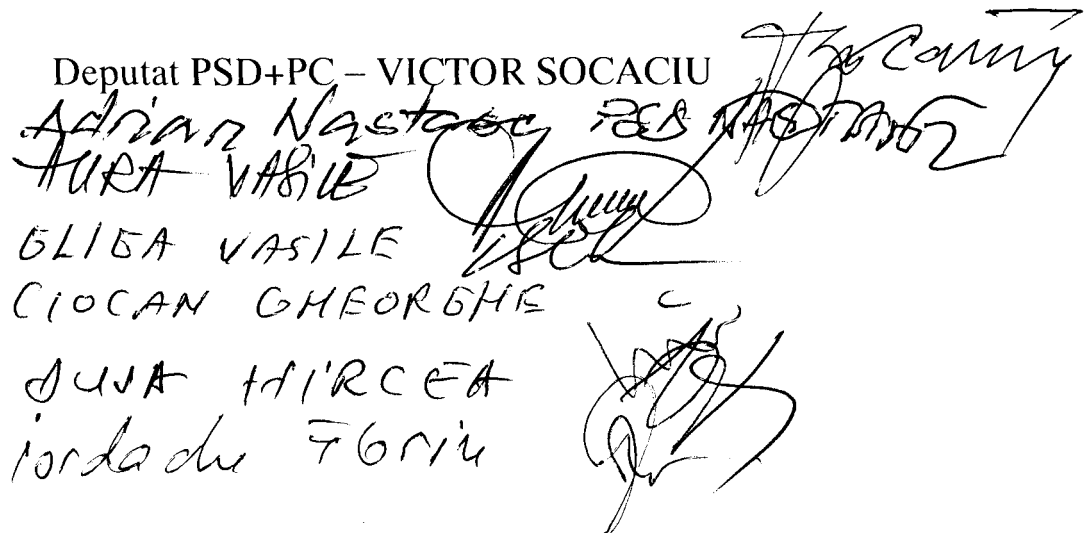 Deputat PSD+PC – VICTOR SOCACIU
Adrian Nastase PSD
AURA VASILE
GLIGA VASILE
CIOCAN GHEORGHE
DUSA MIRCEA
iordache Florin